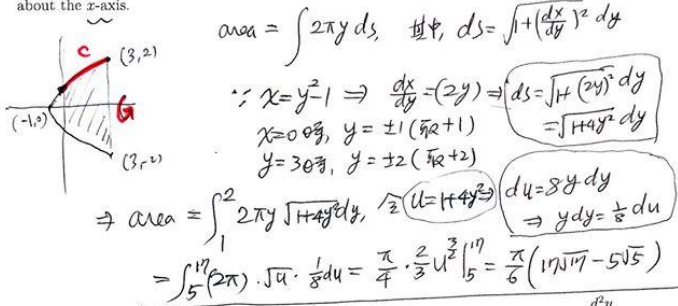 about the x-axis.
area = ∫ 2πy ds, 其中, ds = √(1+(dx/dy)²) dy
C
(3,2)
(-1,0)
(3,-2)
∵ x=y²-1 ⇒ dx/dy = (2y) ⇒ ds = √(1+(2y)²) dy
= √(1+4y²) dy
x=0時, y = ±1 (取+1)
y=3時, y = ±2 (取+2)
⇒ area = ∫₁² 2πy √(1+4y²) dy, 令 u=1+4y² ⇒ du = 8y dy
⇒ y dy = 1/8 du
= ∫₅¹⁷ (2π) · √u · 1/8 du = π/4 · 2/3 u^(3/2) |₅¹⁷ = π/6 (17√17 - 5√5)